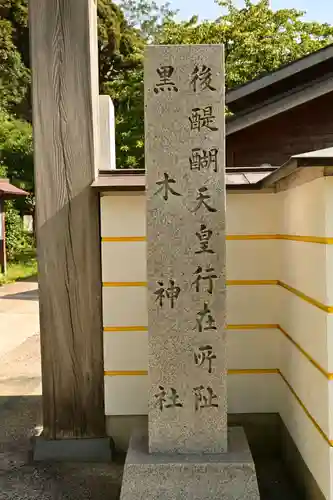 後醍醐天皇行在所址
黒木神社